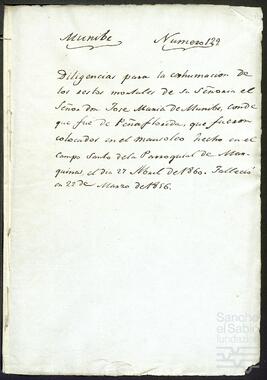 Munibe Numero 132
Diligencias para la exhumacion de
los restos mortales de Su Señoria el
Señor don José Maria de Munibe, conde
que fue de Peñaflorida, que fueron
colocados en el mausoleo hecho en el
campo Santo de la Parroquial de Mar-
quina, el dia 27 Abril de 1860. Falleció
en 22 de Marzo de 1856.
Sancho
el Sabio
fundazioa